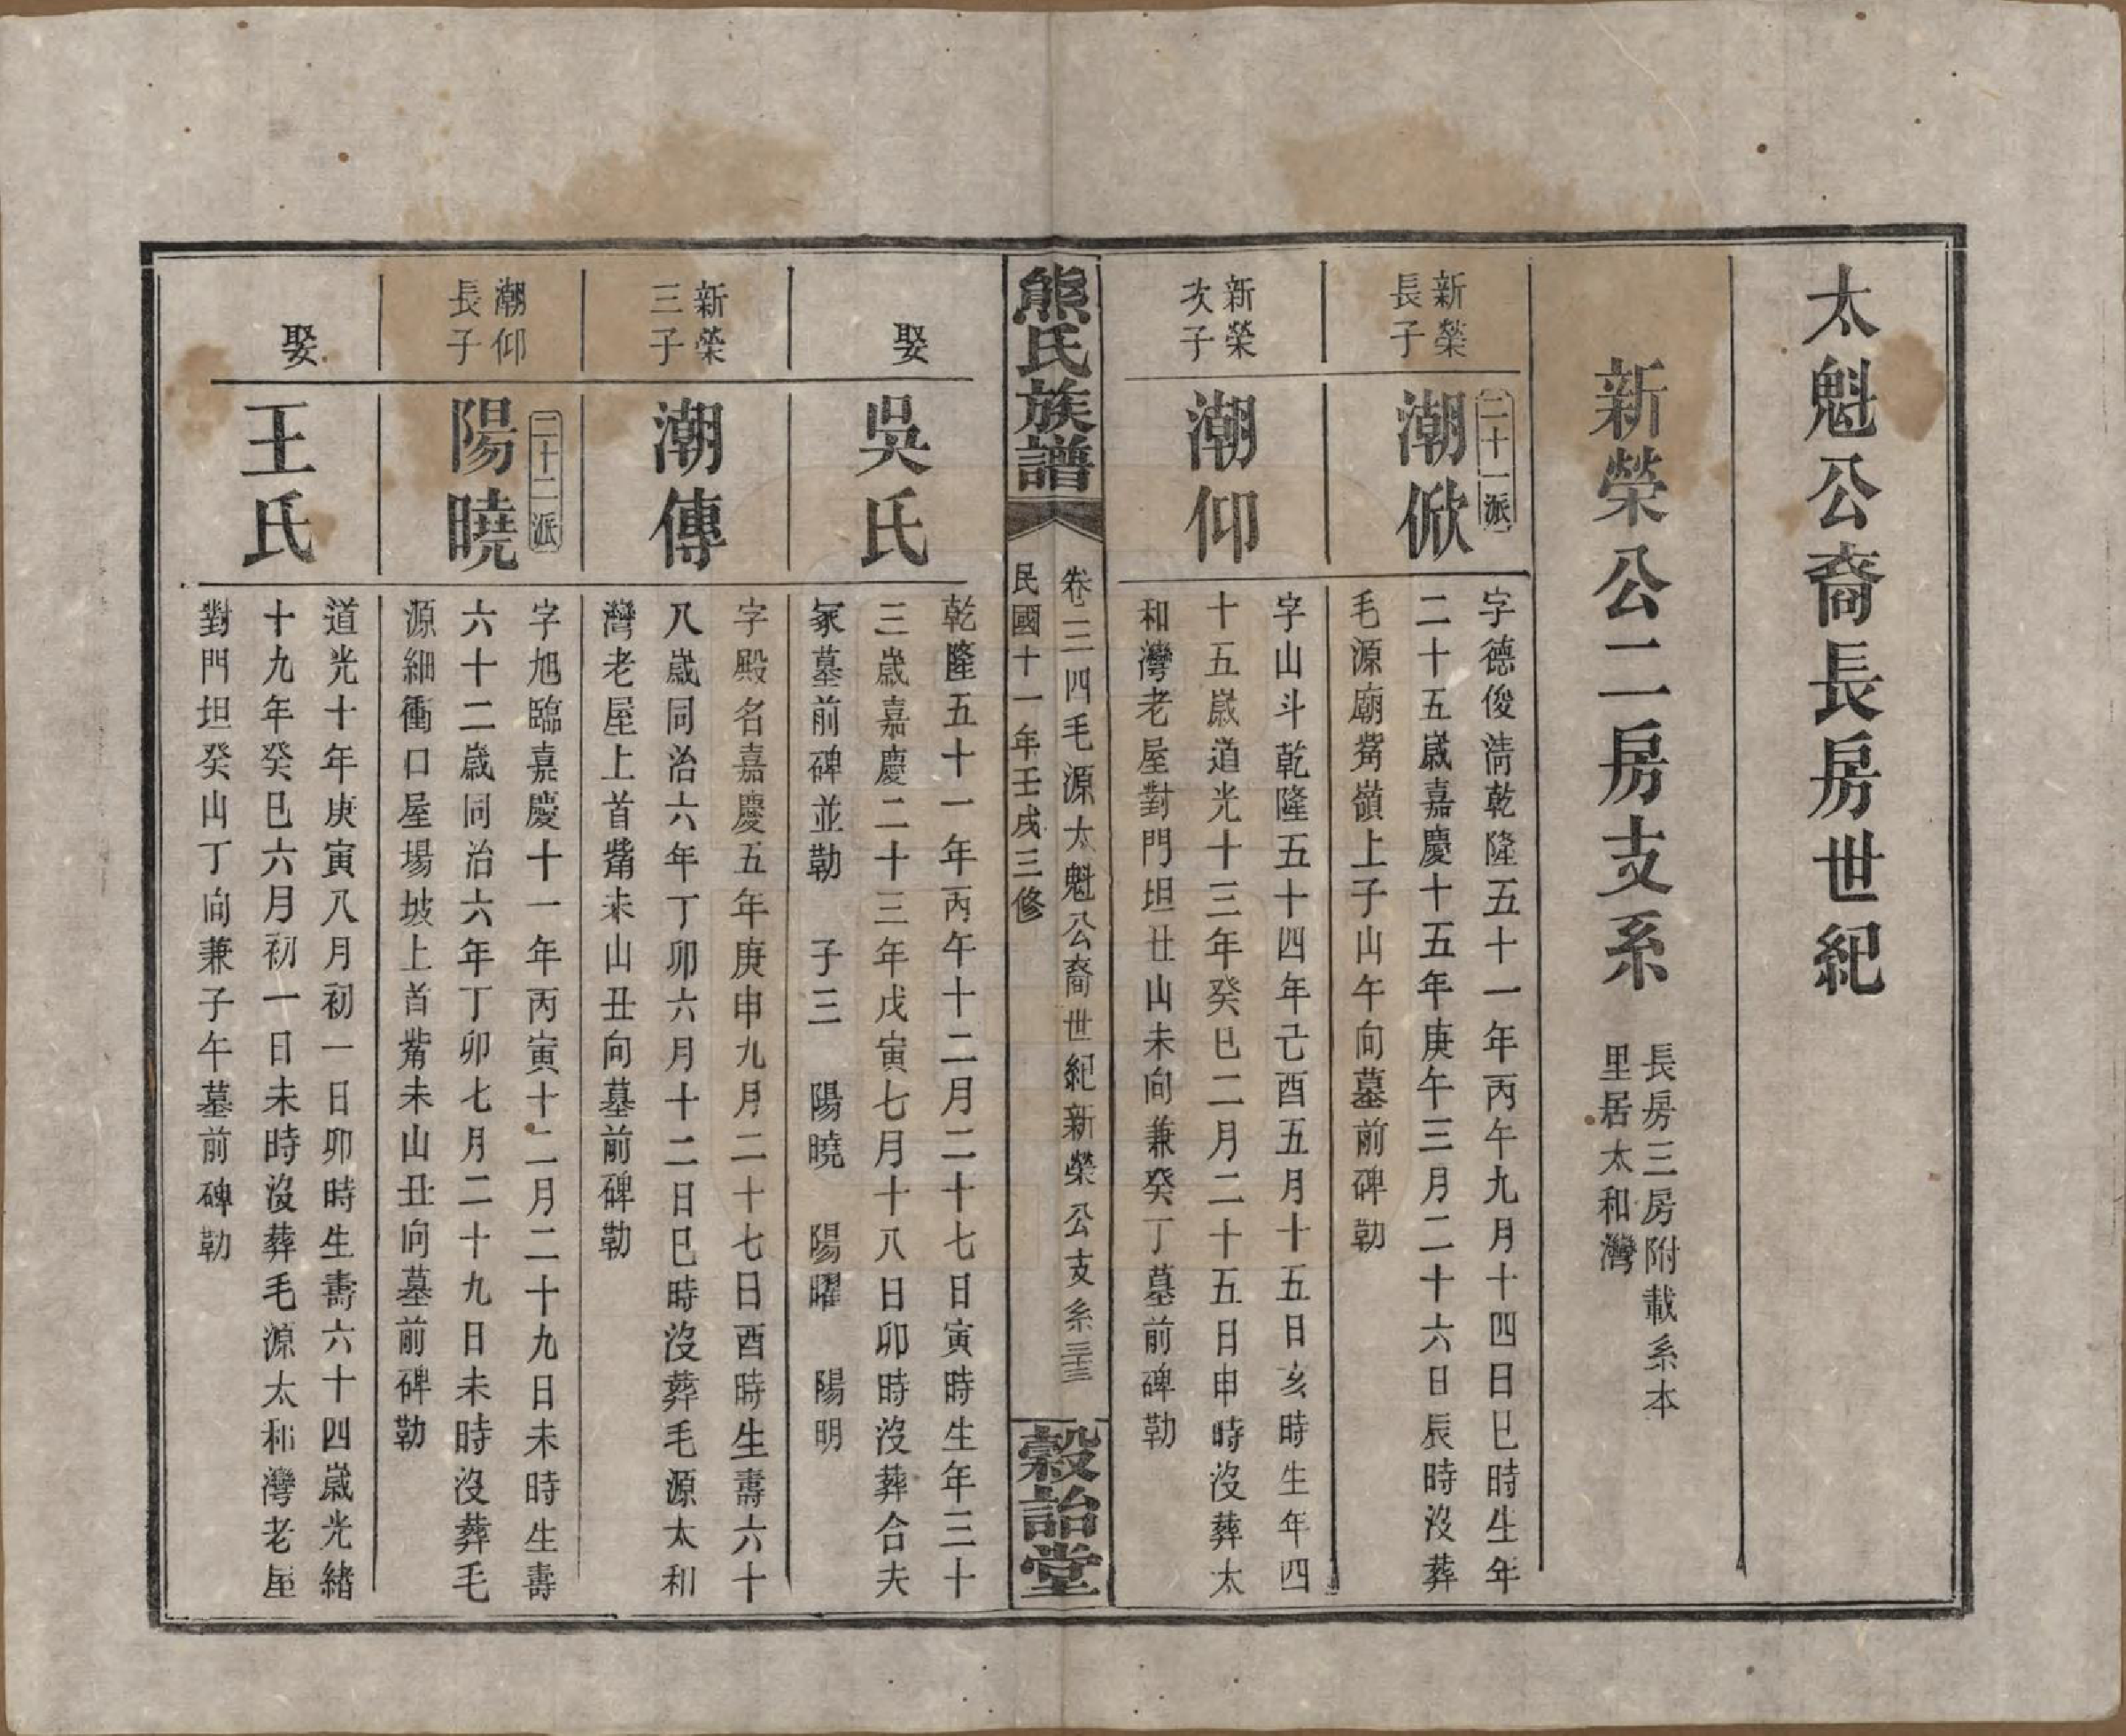 太魁公裔長房世紀
新榮公二房支系
長房三房附載系本
里居太和灣
新榮
長子
二十一派
潮俽
字德俊淸乾隆五十一年丙午九月十四日巳時生年
二十五歲嘉慶十五年庚午三月二十六日辰時沒葬
毛源廟觜嶺上子山午向墓前碑勒
新榮
次子
潮仰
字山斗乾隆五十四年己酉五月十五日亥時生年四
十五歲道光十三年癸巳二月二十五日申時沒葬太
和灣老屋對門坦丑山未向兼癸丁墓前碑勒
熊氏族譜
卷二二四毛源太魁公裔世紀新榮公支系三十三
民國十一年壬戌三修
穀詒堂
娶
吳氏
乾隆五十一年丙午十二月二十七日寅時生年三十
三歲嘉慶二十三年戊寅七月十八日卯時沒葬合夫
冢墓前碑並勒 子三 陽曉 陽曜 陽明
新榮
三子
潮傳
字殿名嘉慶五年庚申九月二十七日酉時生壽六十
八歲同治六年丁卯六月十二日巳時沒葬毛源太和
灣老屋上首觜未山丑向墓前碑勒
潮仰
長子
二十二派
陽曉
字旭臨嘉慶十一年丙寅十二月二十九日未時生壽
六十二歲同治六年丁卯七月二十九日未時沒葬毛
源細衝口屋場坡上首觜未山丑向墓前碑勒
娶
王氏
道光十年庚寅八月初一日卯時生壽六十四歲光緒
十九年癸巳六月初一日未時沒葬毛源太和灣老屋
對門坦癸山丁向兼子午墓前碑勒